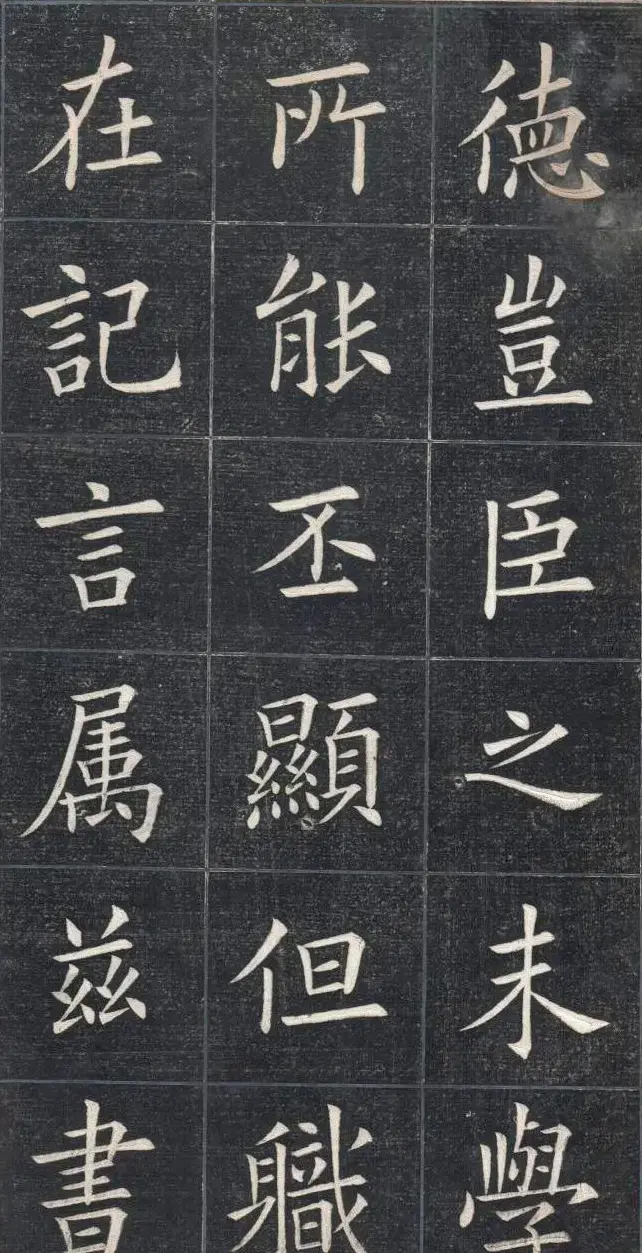 德豈臣之末學
所能丕顯但職
在記言属兹書